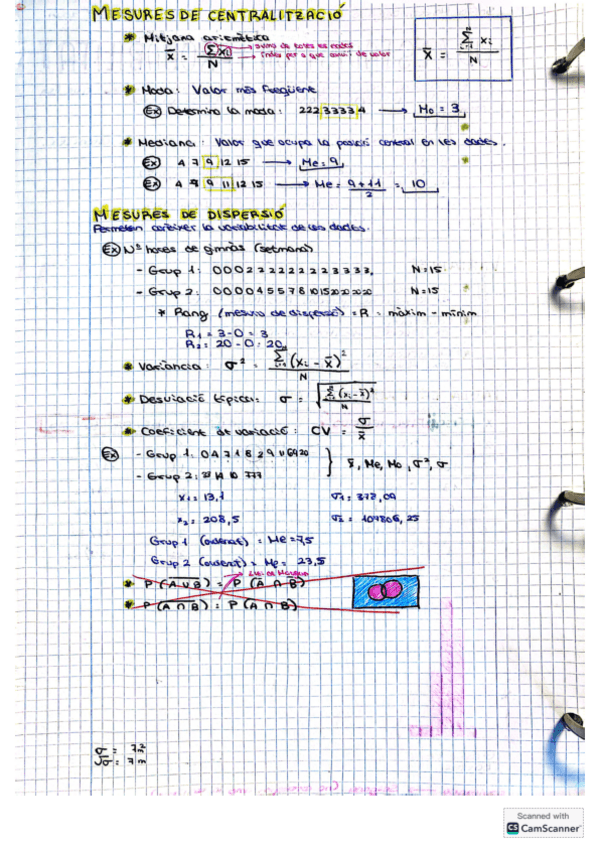 MESURES DE CENTRALITZACIÓ
* Mitjana aritmètica
x̄ = Σxi / N → suma de totes les dades
x̄ = Σ xi / N
* Moda: Valor més freqüent
Ex Determina la moda: 222 3333 4 → Mo = 3
* Mediana: Valor que ocupa la posició central en les dades.
Ex 4 7 9 12 15 → Me = 9
Ex 4 7 9 11 12 15 → Me = 9 + 11 / 2 = 10
MESURES DE DISPERSIÓ
Permeten conèixer la variabilitat de les dades.
Ex Nº hores de gimnàs (setmana)
- Grup 1: 0 0 0 2 2 2 2 2 2 2 2 3 3 3 3. N = 15
- Grup 2: 0 0 0 0 4 5 5 7 8 10 15 20 20 20 20 N = 15
* Rang (mesura de dispersió) = R = màxim - mínim
R1 = 3 - 0 = 3
R2 = 20 - 0 = 20
* Variància: σ² = Σ (xi - x̄)² / N
* Desviació típica: σ = √ Σ (xi - x̄)² / N
* Coeficient de variació: CV = σ / x̄
Ex - Grup 1: 0 4 7 1 8 2 9
- Grup 2:
} x̄, Me, Mo, σ², σ
x1 = 13,1
x2 = 208,5 σ2 = 104806,25
Grup 1 (ordenat) = Me = 7,5
Grup 2 (ordenat) = Me = 23,5
* P(A ∪ B) = P(A ∩ B)
* P(A ∩ B) = P(A ∪ B)
σ = 7 m²
√σ = 7 m
Scanned with
CS CamScanner